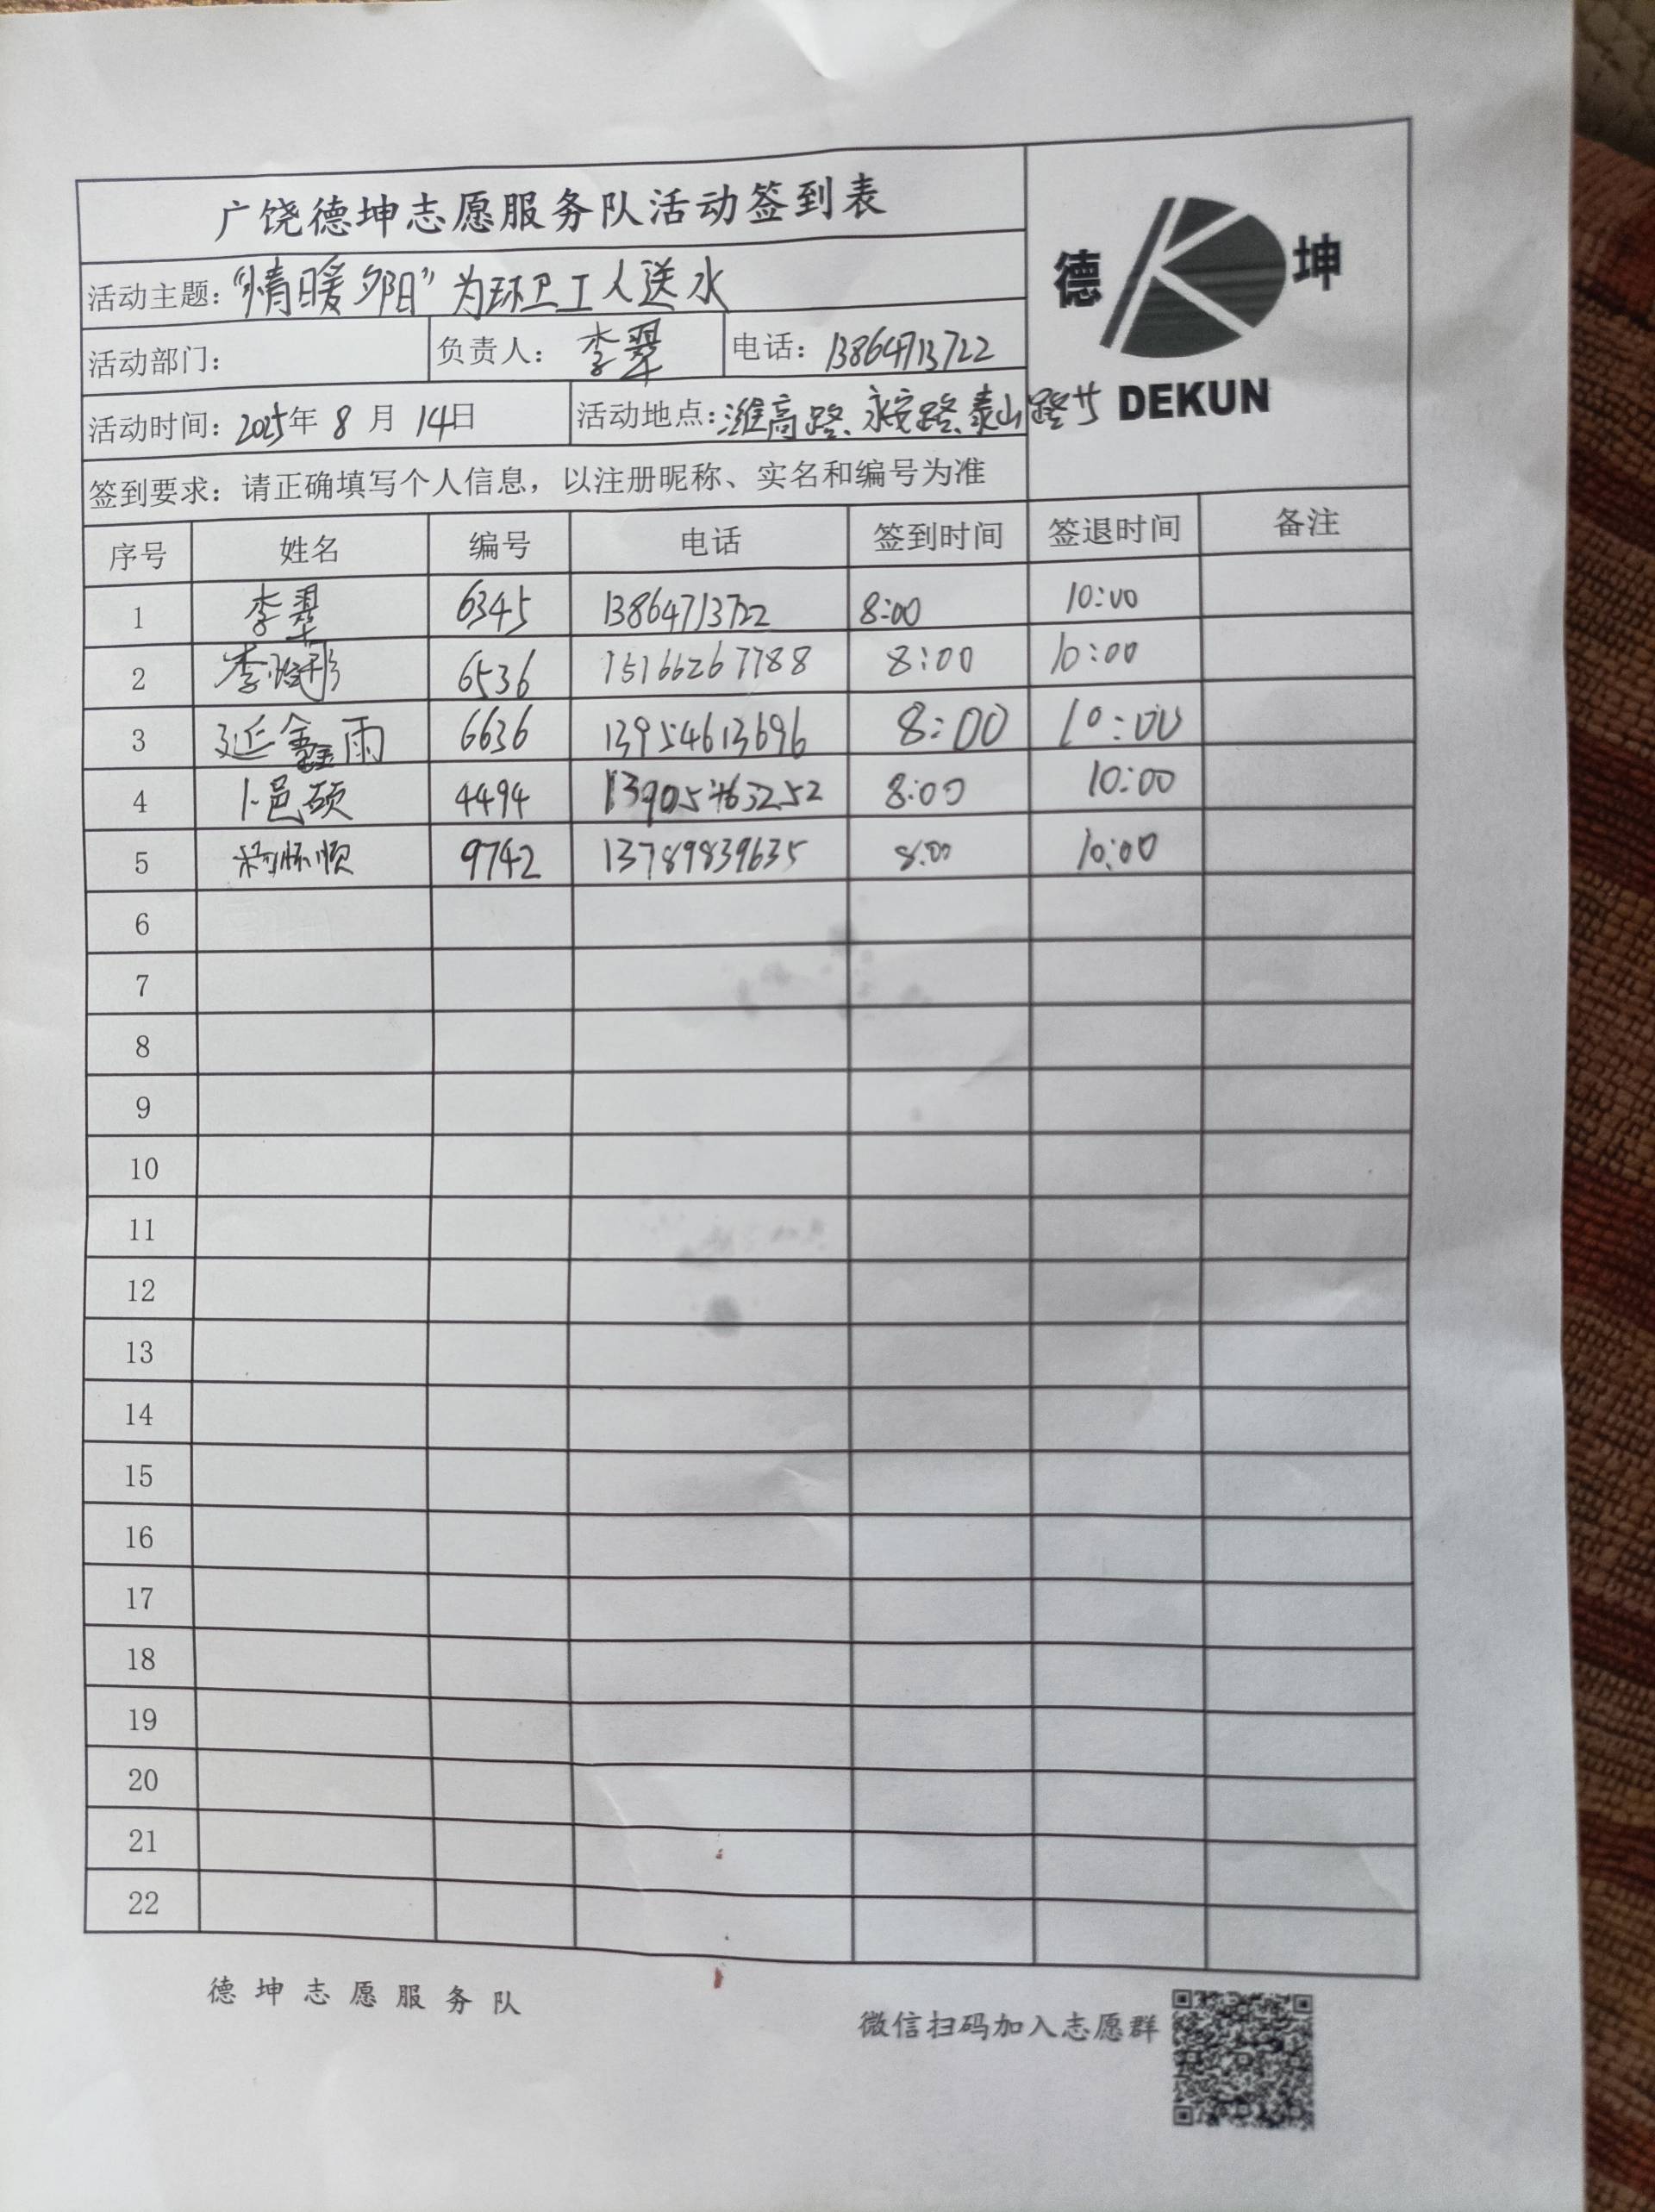 广饶德坤志愿服务队活动签到表
德 坤
DEKUN
活动主题：“情暖夕阳”为环卫工人送水
活动部门： 负责人：李翠 电话：13864713722
活动时间：2025年 8 月 14日 活动地点：潍高路、永安路、泰山路廿
签到要求：请正确填写个人信息，以注册昵称、实名和编号为准
序号 姓名 编号 电话 签到时间 签退时间 备注
1 李翠 6345 13864713722 8:00 10:00
2 李 6536 15166267788 8:00 10:00
3 延鑫雨 6636 13954613696 8:00 10:00
4 卜邑硕 4494 13905463252 8:00 10:00
5 9742 13789839635 8:00 10:00
6
7
8
9
10
11
12
13
14
15
16
17
18
19
20
21
22
德坤志愿服务队
微信扫码加入志愿群